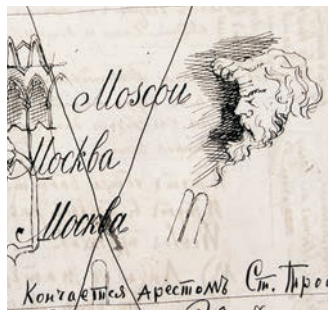 Moscou
Москва
Москва
Кончается арестомъ Ст.